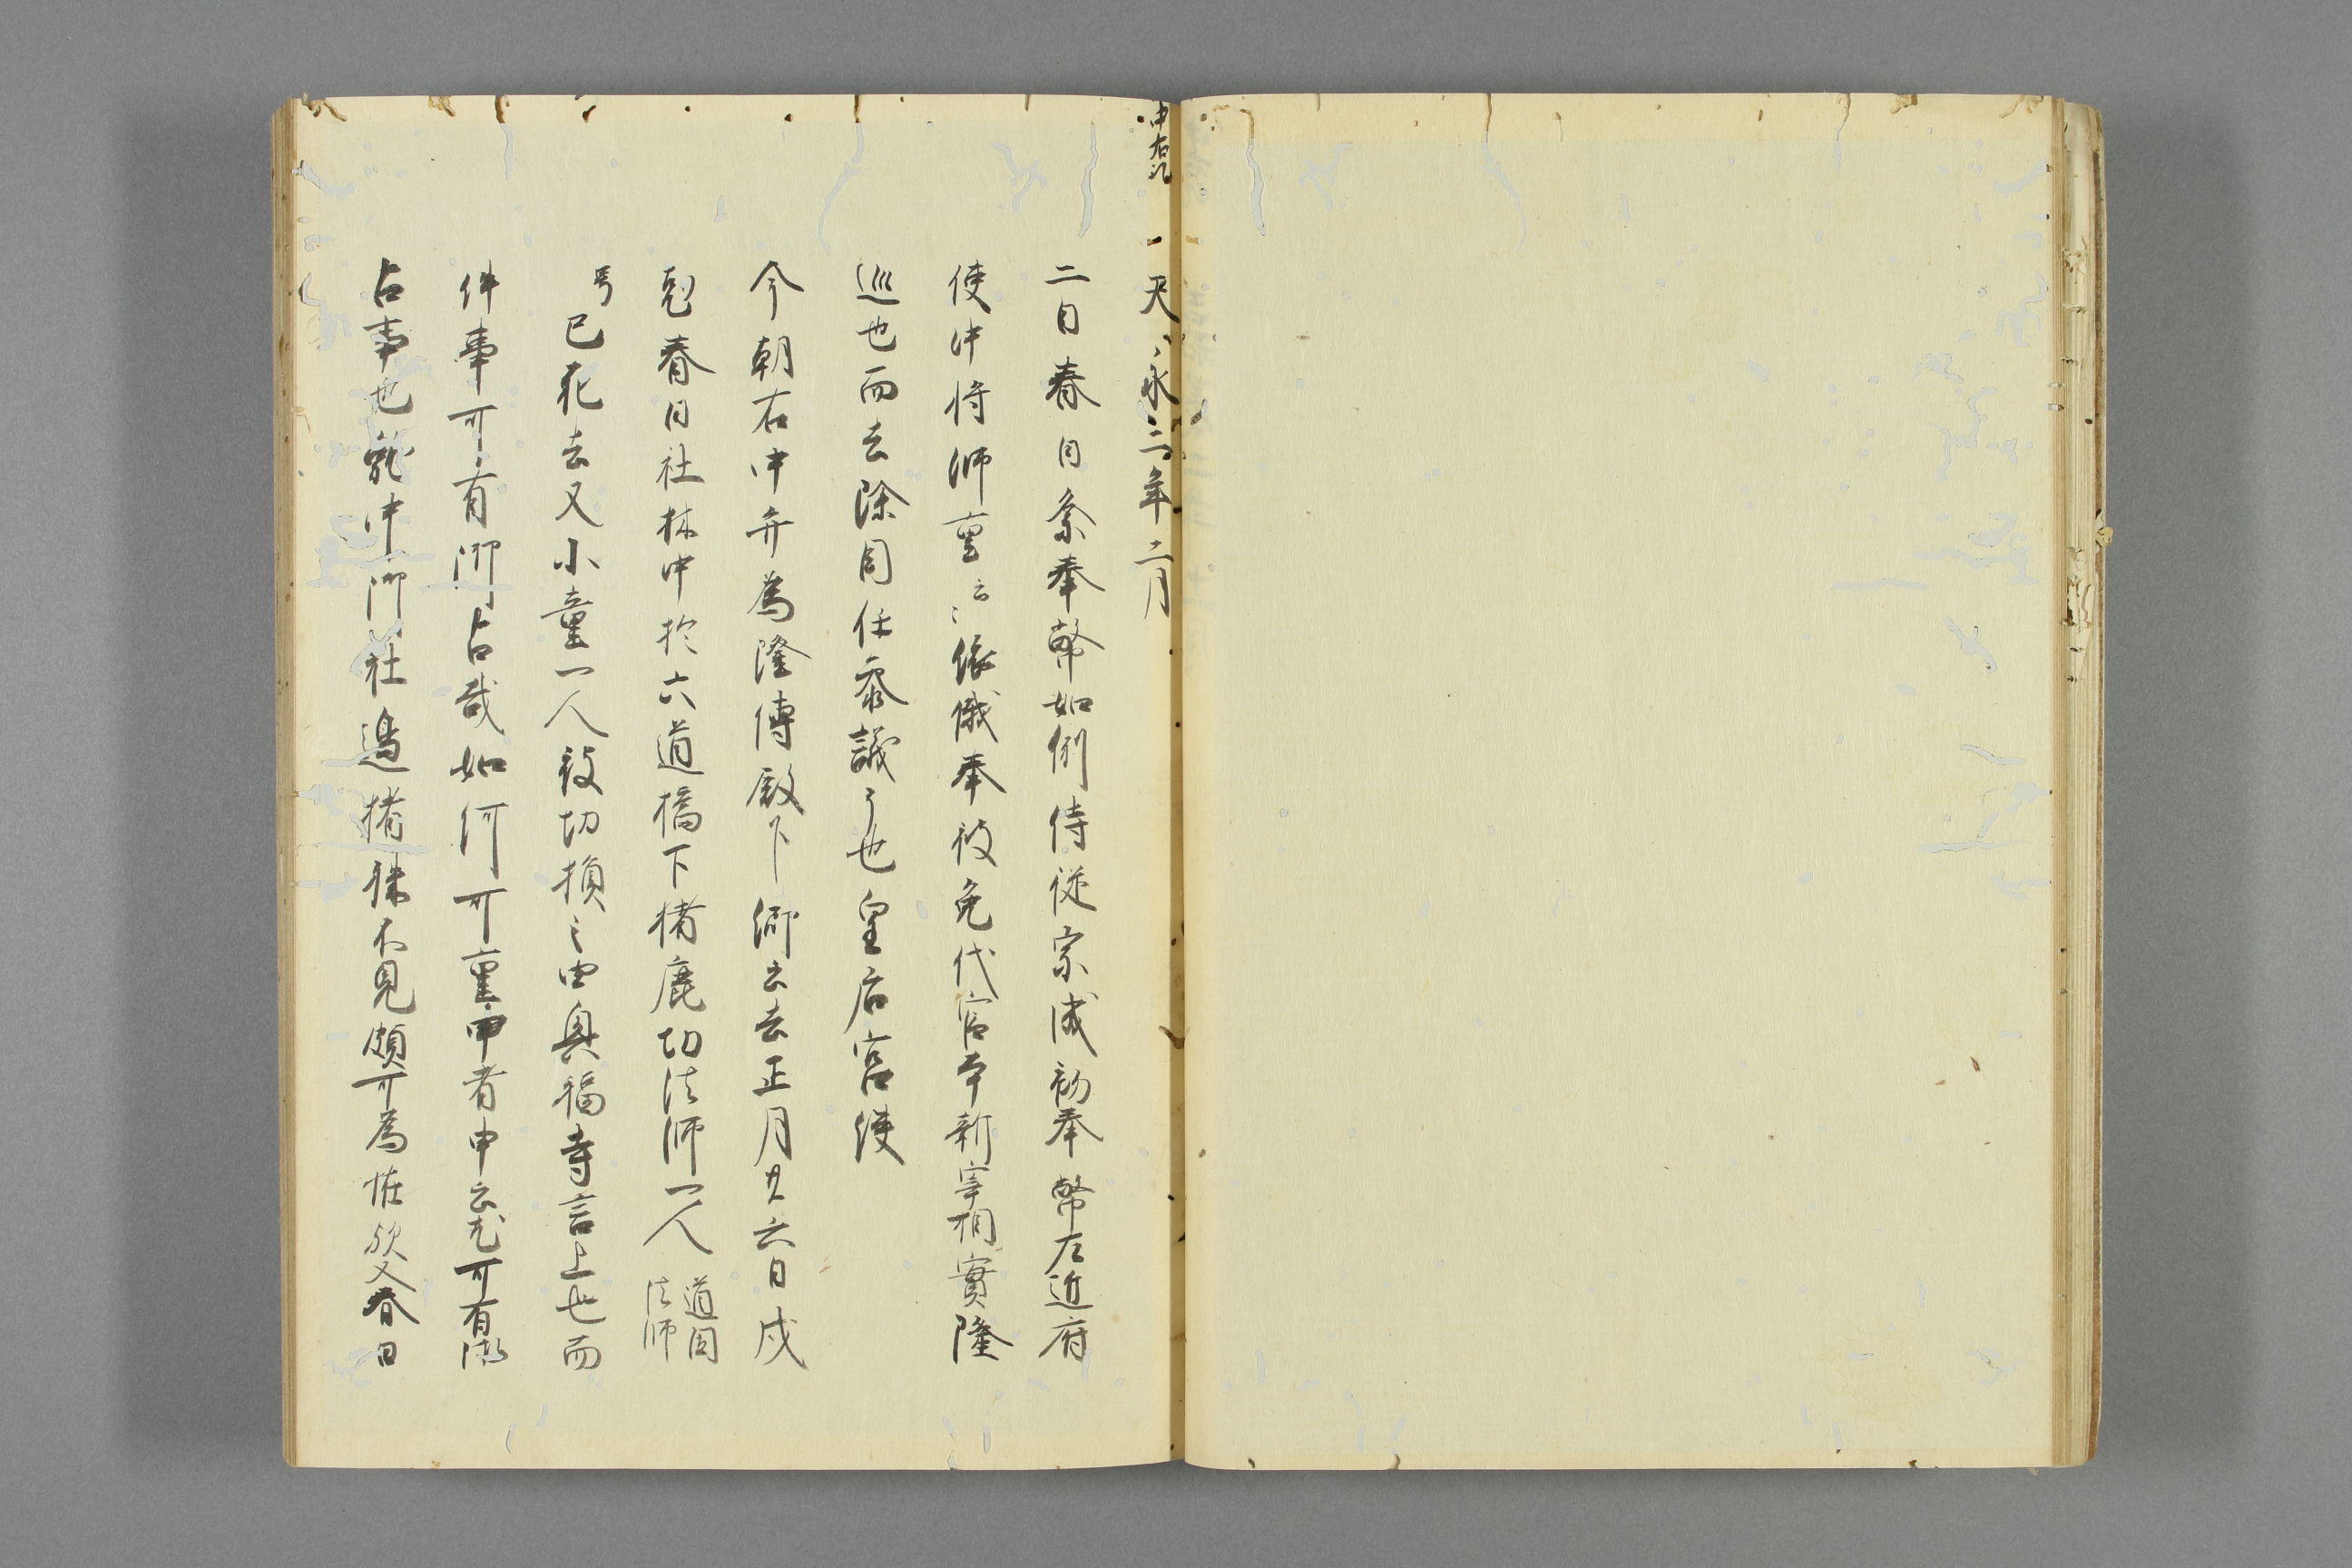 中右記
天永二年二月
二日春日祭奉幣如例侍従宗成初奉幣左近府
使中将師重云々依儀奉被免代官本新宰相實隆
巡也而去除目任参議了也皇后宮使
今朝右中弁為隆傳殿下仰云去正月廿六日戌
剋春日社林中於六道橋下猪鹿切法師一人道国法師
号已死去又小童一人被切損之由興福寺言上也而
件事可有御占哉如何可量申者申云尤可有御
占事也就中御社邊猪鹿不見頗可為恠歟又春日